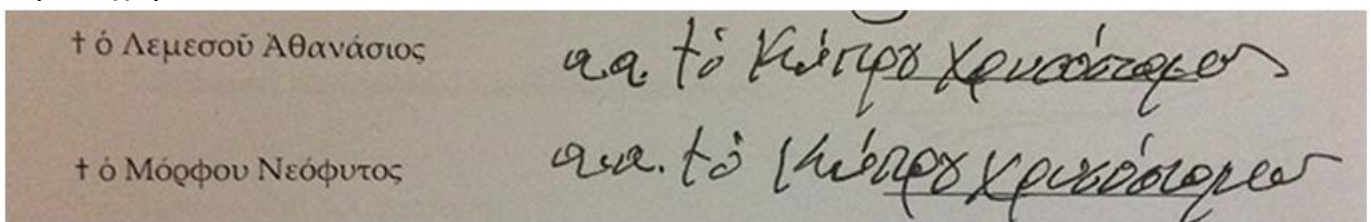 † ὁ Λεμεσοῦ Ἀθανάσιος α.α. † ὁ Κύπρου Χρυσόστομος
† ὁ Μόρφου Νεόφυτος α.α. † ὁ Κύπρου Χρυσόστομος